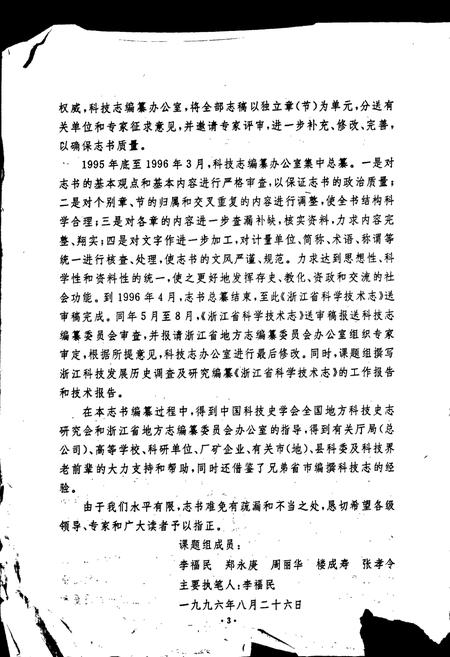 权威,科技志编纂办公室,将全部志稿以独立章(节)为单元,分送有
关单位和专家征求意见,并邀请专家评审,进一步补充、修改、完善,
以确保志书质量。
1995年底至1996年3月,科技志编纂办公室集中总纂。一是对
志书的基本观点和基本内容进行严格审查,以保证志书的政治质量;
二是对个别章、节的归属和交叉重复的内容进行调整,使全书结构科
学合理;三是对各章的内容进一步查漏补缺,核实资料,力求内容完
整、翔实;四是对文字作进一步加工,对计量单位、简称、术语、称谓等
统一进行核查、处理,使志书的文风严谨、规范。力求达到思想性、科
学性和资料性的统一,使之更好地发挥存史、教化、资政和交流的社
会功能。到1996年4月,志书总纂结束,至此《浙江省科学技术志》送
审稿完成。同年5月至8月,《浙江省科学技术志》送审稿报送科技志
编纂委员会审查,并报请浙江省地方志编纂委员会办公室组织专家
审定,根据所提意见,科技志办公室进行最后修改。同时,课题组撰写
浙江科技发展历史调查及研究编纂《浙江省科学技术志》的工作报告
和技术报告。
在本志书编纂过程中,得到中国科技史学会全国地方科技史志
研究会和浙江省地方志编纂委员会办公室的指导,得到有关厅局(总
公司)、高等学校、科研单位、厂矿企业、有关市(地)、县科委及科技界
老前辈的大力支持和帮助,同时还借鉴了兄弟省市编撰科技志的经
验。
由于我们水平有限,志书难免有疏漏和不当之处,恳切希望各级
领导、专家和广大读者予以指正。
课题组成员:
李福民 郑永庚 周丽华 楼成寿 张孝令
主要执笔人:李福民
一九九六年八月二十六日
·3·